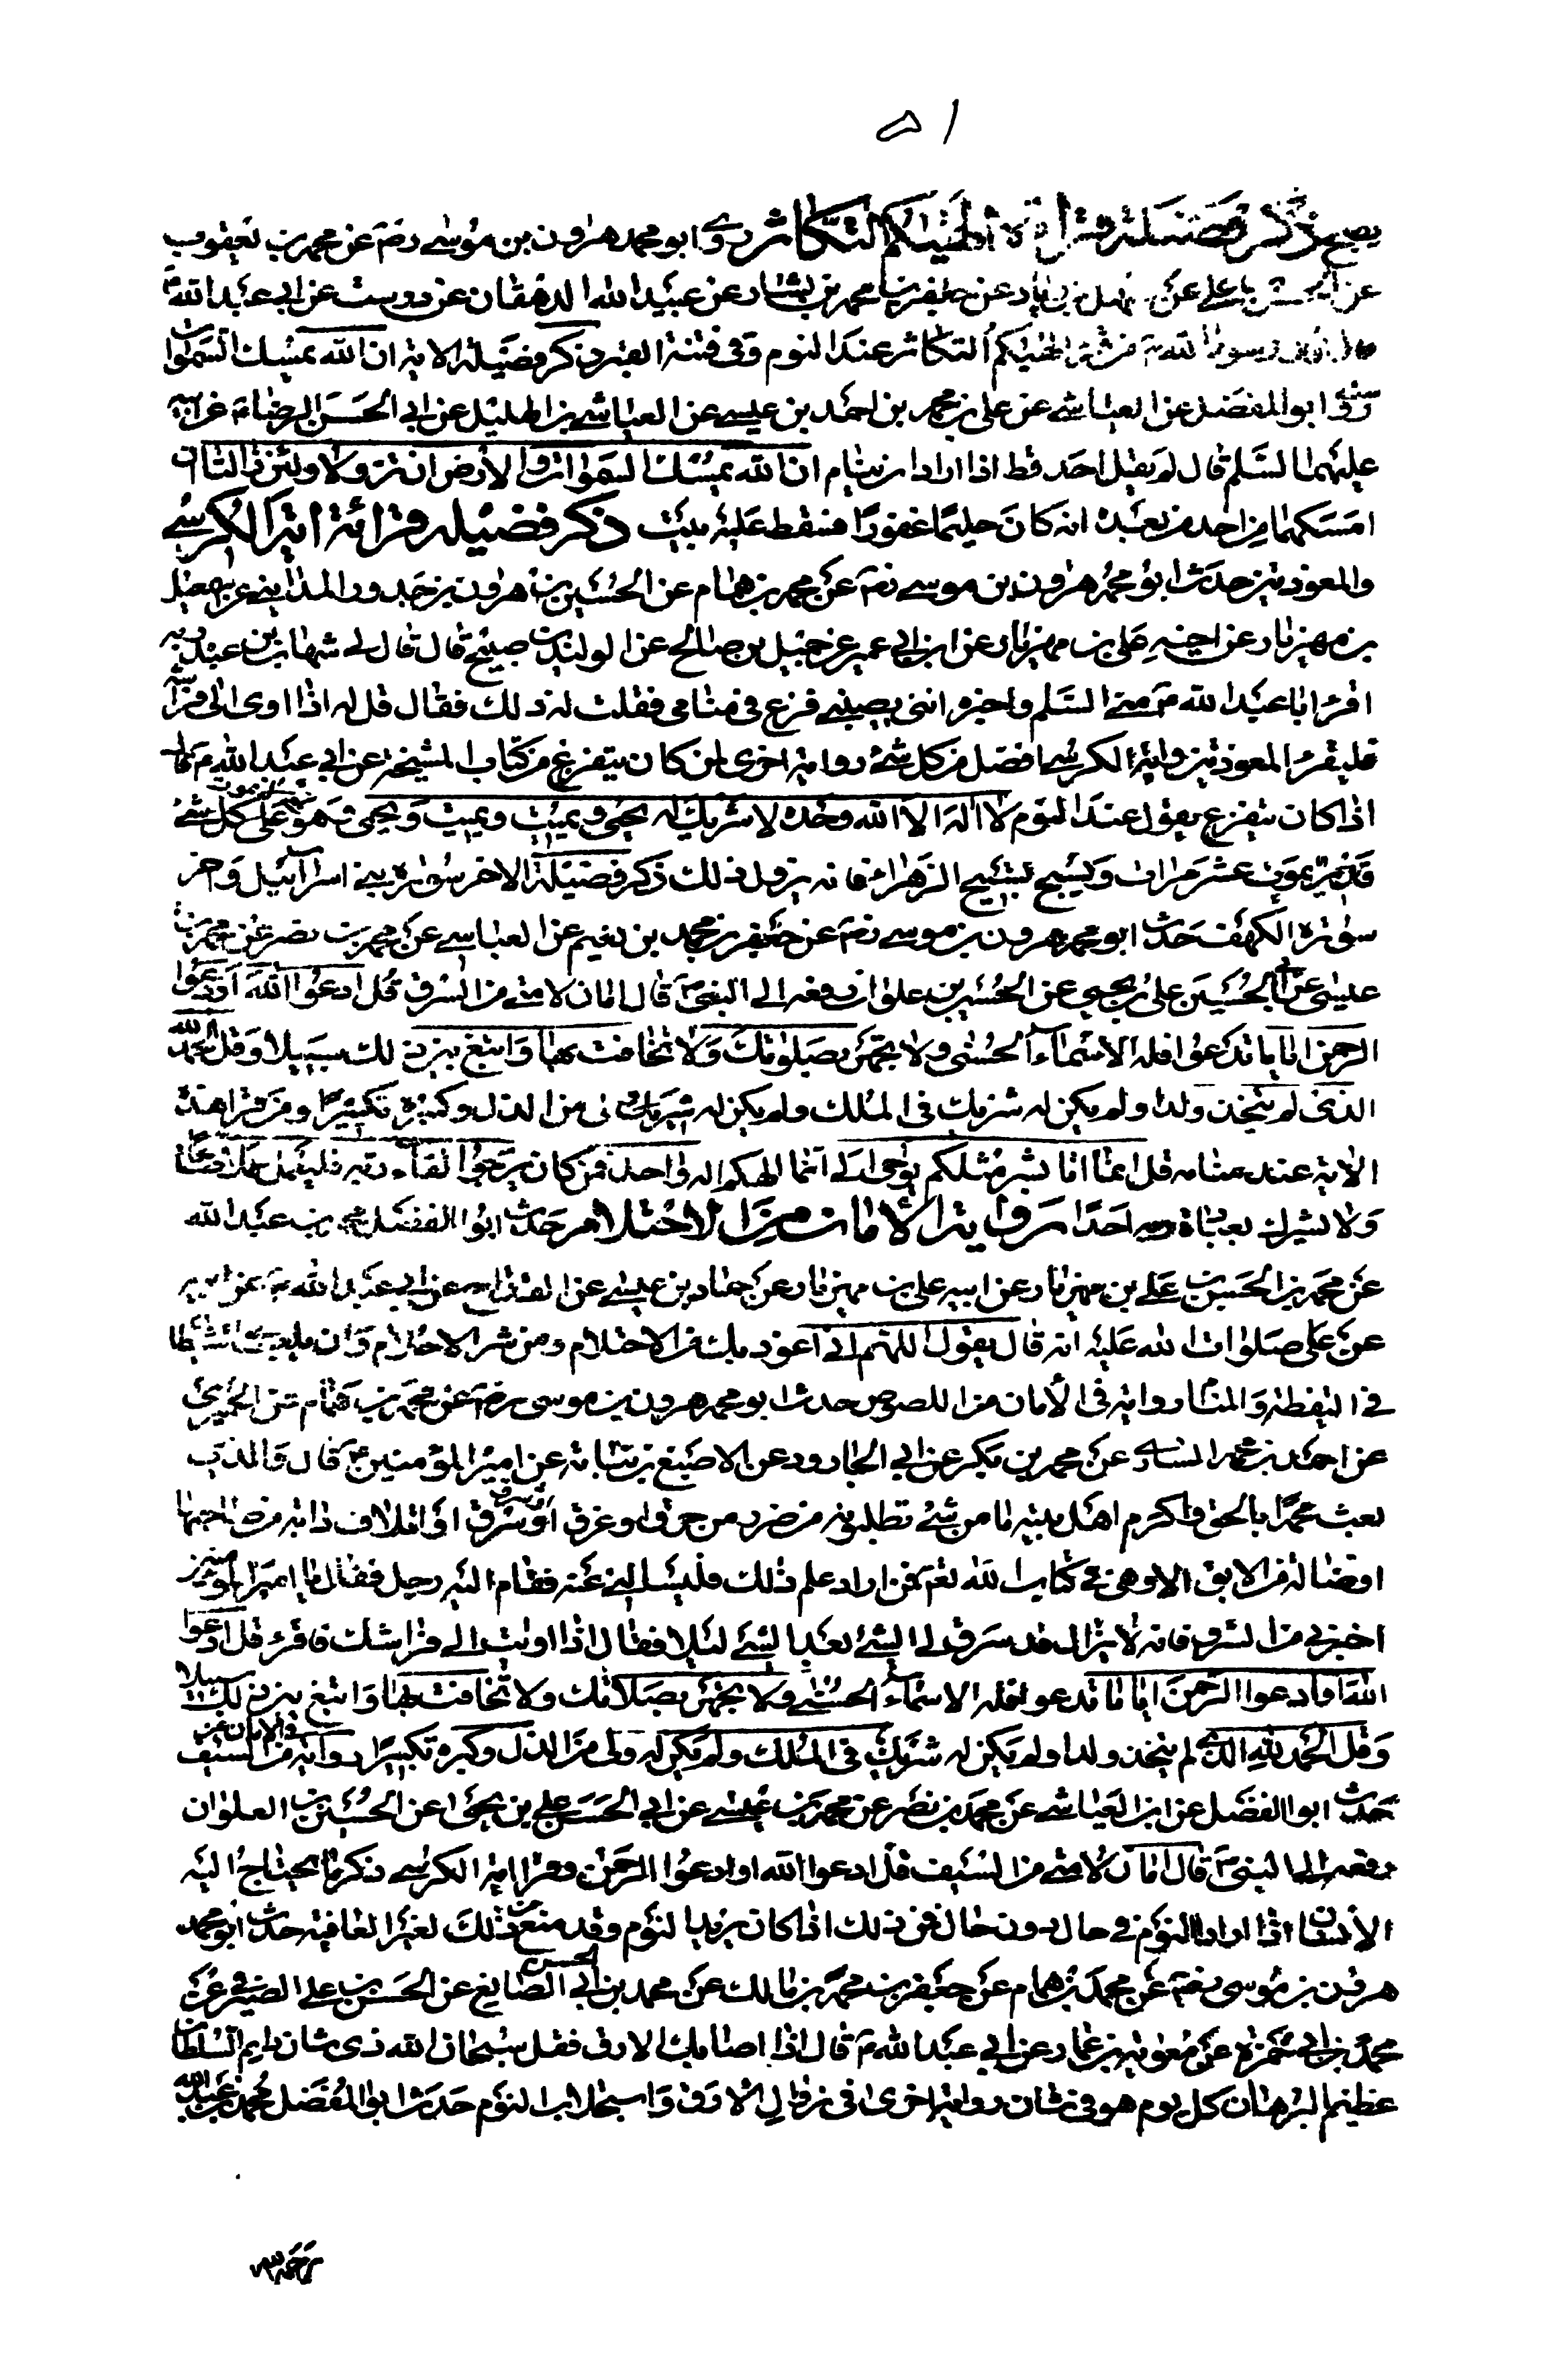 يصبح ذكر فضيلة قراءة الهيكم التكاثر روى ابو محمد هرون بن موسى رضه عن محمد بن يعقوب
عن سهل بن زياد عن جعفر بن محمد بن بشار عن عبيد الله الدهقان عن درست عن ابى عبد الله ع
قال قال رسول الله ص من قرء الهيكم التكاثر عند النوم وقى فتنة القبر ذكر فضيلة الاية ان الله يمسك السموات
روى ابو المفضل عن العباشى عن على بن محمد بن احمد بن عيسى عن العباشى بن الهليل عن ابى الحسن الرضا ع عن ابيه
عليهما السلم قال لم يقل احد قط اذا اراد ان ينام ان الله يمسك السموات والارض ان تزولا ولئن زالتا ان
امسكهما من احد من بعده انه كان حليما غفورا فسقط عليه بيت ذكر فضيلة قرائة اية الكرسى
والمعوذتين حدث ابو محمد هرون بن موسى رضه عن محمد بن همام عن الحسين بن هرون بن حمدور المداينى عن ابرهيم
بن مهزيار عن اخيه على بن مهزيار عن ابن ابى عمير عن جميل بن صالح عن الوليد بن صبيح قال قال لى شهاب بن عبد ربه
اقرء ابا عبد الله ع منى السلم واخبره اننى يصيبنى فزع فى منامى فقلت له ذلك فقال قل له اذا اوى الى فراشه
فليقرء المعوذتين واية الكرسى افضل من كل شئ رواية اخرى لمن كان يتفزع من كتاب المشيخة عن ابى عبد الله ع قال
اذا كان يتفزع يقول عند النوم لا اله الا الله وحده لا شريك له يحيى ويميت ويميت ويحيى وهو على كل شئ
قدير عشر مرات ويسبح تسبيح الزهراء فانه يزول ذلك ذكر فضيلة الاخر سورة بنى اسرآئيل واخر
سورة الكهف حدث ابو محمد هرون بن موسى رضه عن جعفر بن محمد بن نعيم عن العباسى عن محمد بن نصر عن محمد بن
عيسى عن ابى الحسين على بن يحيى عن الحسين بن علوان رفعه الى النبى ص قال امان لامتى من السرق قل ادعوا الله او ادعوا
الرحمن ايا ما تدعوا فله الاسماء الحسنى ولا تجهر بصلوتك ولا تخافت بها وابتغ بين ذلك سبيلا وقل الحمد لله
الذى لم يتخذ ولدا ولم يكن له شريك فى الملك ولم يكن له ولى من الذل وكبره تكبيرا ومن قرا هذه
الاية عند منامه قل انما انا بشر مثلكم يوحى الى انما الهكم اله واحد فمن كان يرجوا لقاء ربه فليعمل عملا صالحا
ولا يشرك بعبادة ربه احدا رواية الامان من الاحتلام حدث ابو المفضل محمد بن عبد الله
عن محمد بن الحسين بن على بن مهزيار عن ابيه على بن مهزيار عن حماد بن عيسى عن القداح عن ابى عبد الله ع عن ابيه
عن على صلوات الله عليه انه قال يقول اللهم انى اعوذ بك من الاحتلام ومن شر الاحلام وان يلعب بى الشيطان
فى اليقظة والمنام رواية فى الامان من اللصوص حدث ابو محمد هرون بن موسى رضه عن محمد بن همام عن الحميرى
عن احمد بن محمد السيارى عن محمد بن بكر عن ابى الجارود عن الاصبغ بن نباتة عن امير المؤمنين ع قال والذى
بعث محمدا بالحق واكرم اهل بيته ما من شئ تطلبونه من ضرر من حرق او غرق او سرق او افلات دابة من صاحبها
او ضالة من الابق الا وهى فى كتاب الله نعم فمن اراد علم ذلك فليسئلنى عنه فقام اليه رجل فقال يا امير المؤمنين
اخبرنى من السرق فانه لا يزال قد سرق لى الشئ بعد الشئ ليلا فقال اذا اويت الى فراشك فاقرء قل ادعوا
الله او ادعوا الرحمن ايا ما تدعو فله الاسماء الحسنى ولا تجهر بصلاتك ولا تخافت بها وابتغ بين ذلك سبيلا
وقل الحمد لله الذى لم يتخذ ولدا ولم يكن له شريك فى الملك ولم يكن له ولى من الذل وكبره تكبيرا رواية فى الامان من السيف
حدث ابو المفضل عن ابن العياشى عن محمد بن نصر عن محمد بن عيسى عن ابى الحسن على بن يحيى عن الحسين بن العلوان
رفعه الى النبى ص قال امان لامتى من السيف قل ادعوا الله او ادعوا الرحمن وقرا اية الكرسى ذكر ما يحتاج اليه
الانسان اذا اراد النوم فى حال دون حال فمن ذلك اذا كان يريد النوم وقد منع من ذلك لغير العافية حدث ابو محمد
هرون بن موسى رضه عن محمد بن همام عن جعفر بن محمد بن مالك عن محمد بن ابى الحسن الصايغ عن الحسن بن على الصيرفى عن
محمد بن ابى حمزة عن معوية بن عمار عن ابى عبد الله ع قال اذا اصابك الارق فقل سبحان الله ذى شان دايم السلطان
عظيم البرهان كل يوم هو فى شان رواية اخرى فى زوال الارق واستجلاب النوم حدث ابو المفضل محمد بن عبد الله